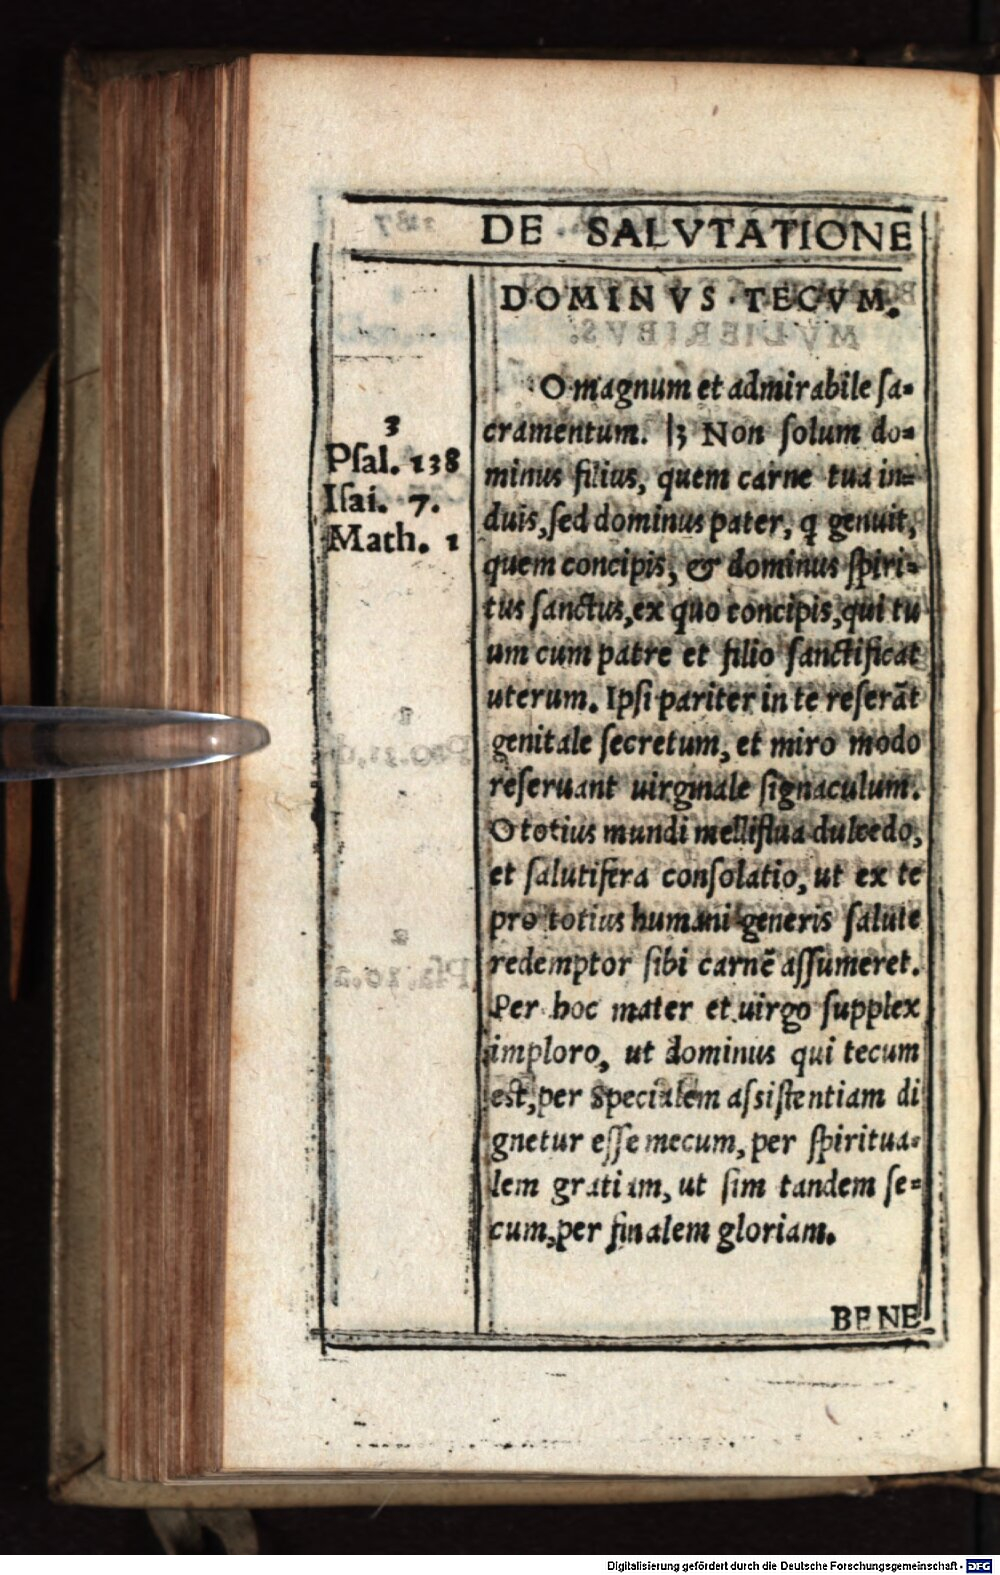 DE SALVTATIONE
DOMINVS TECVM.
3
Psal. 138
Isai. 7.
Math. 1
O magnum et admirabile sa-
cramentum. |3 Non solum do-
minus filius, quem carne tua in-
duis, sed dominus pater, q genuit,
quem concipis, & dominus spiri-
tus sanctus, ex quo concipis, qui tu
um cum patre et filio sanctificat
uterum. Ipsi pariter in te reserāt
genitale secretum, et miro modo
reseruant uirginale signaculum.
O totius mundi melliflua dulcedo,
et salutifera consolatio, ut ex te
pro totius humani generis salute
redemptor sibi carnē assumeret.
Per hoc mater et uirgo supplex
imploro, ut dominus qui tecum
est, per specialem assistentiam di
gnetur esse mecum, per spiritua-
lem gratiam, ut sim tandem se-
cum, per finalem gloriam.
BENE
Digitalisierung gefördert durch die Deutsche Forschungsgemeinschaft - DFG